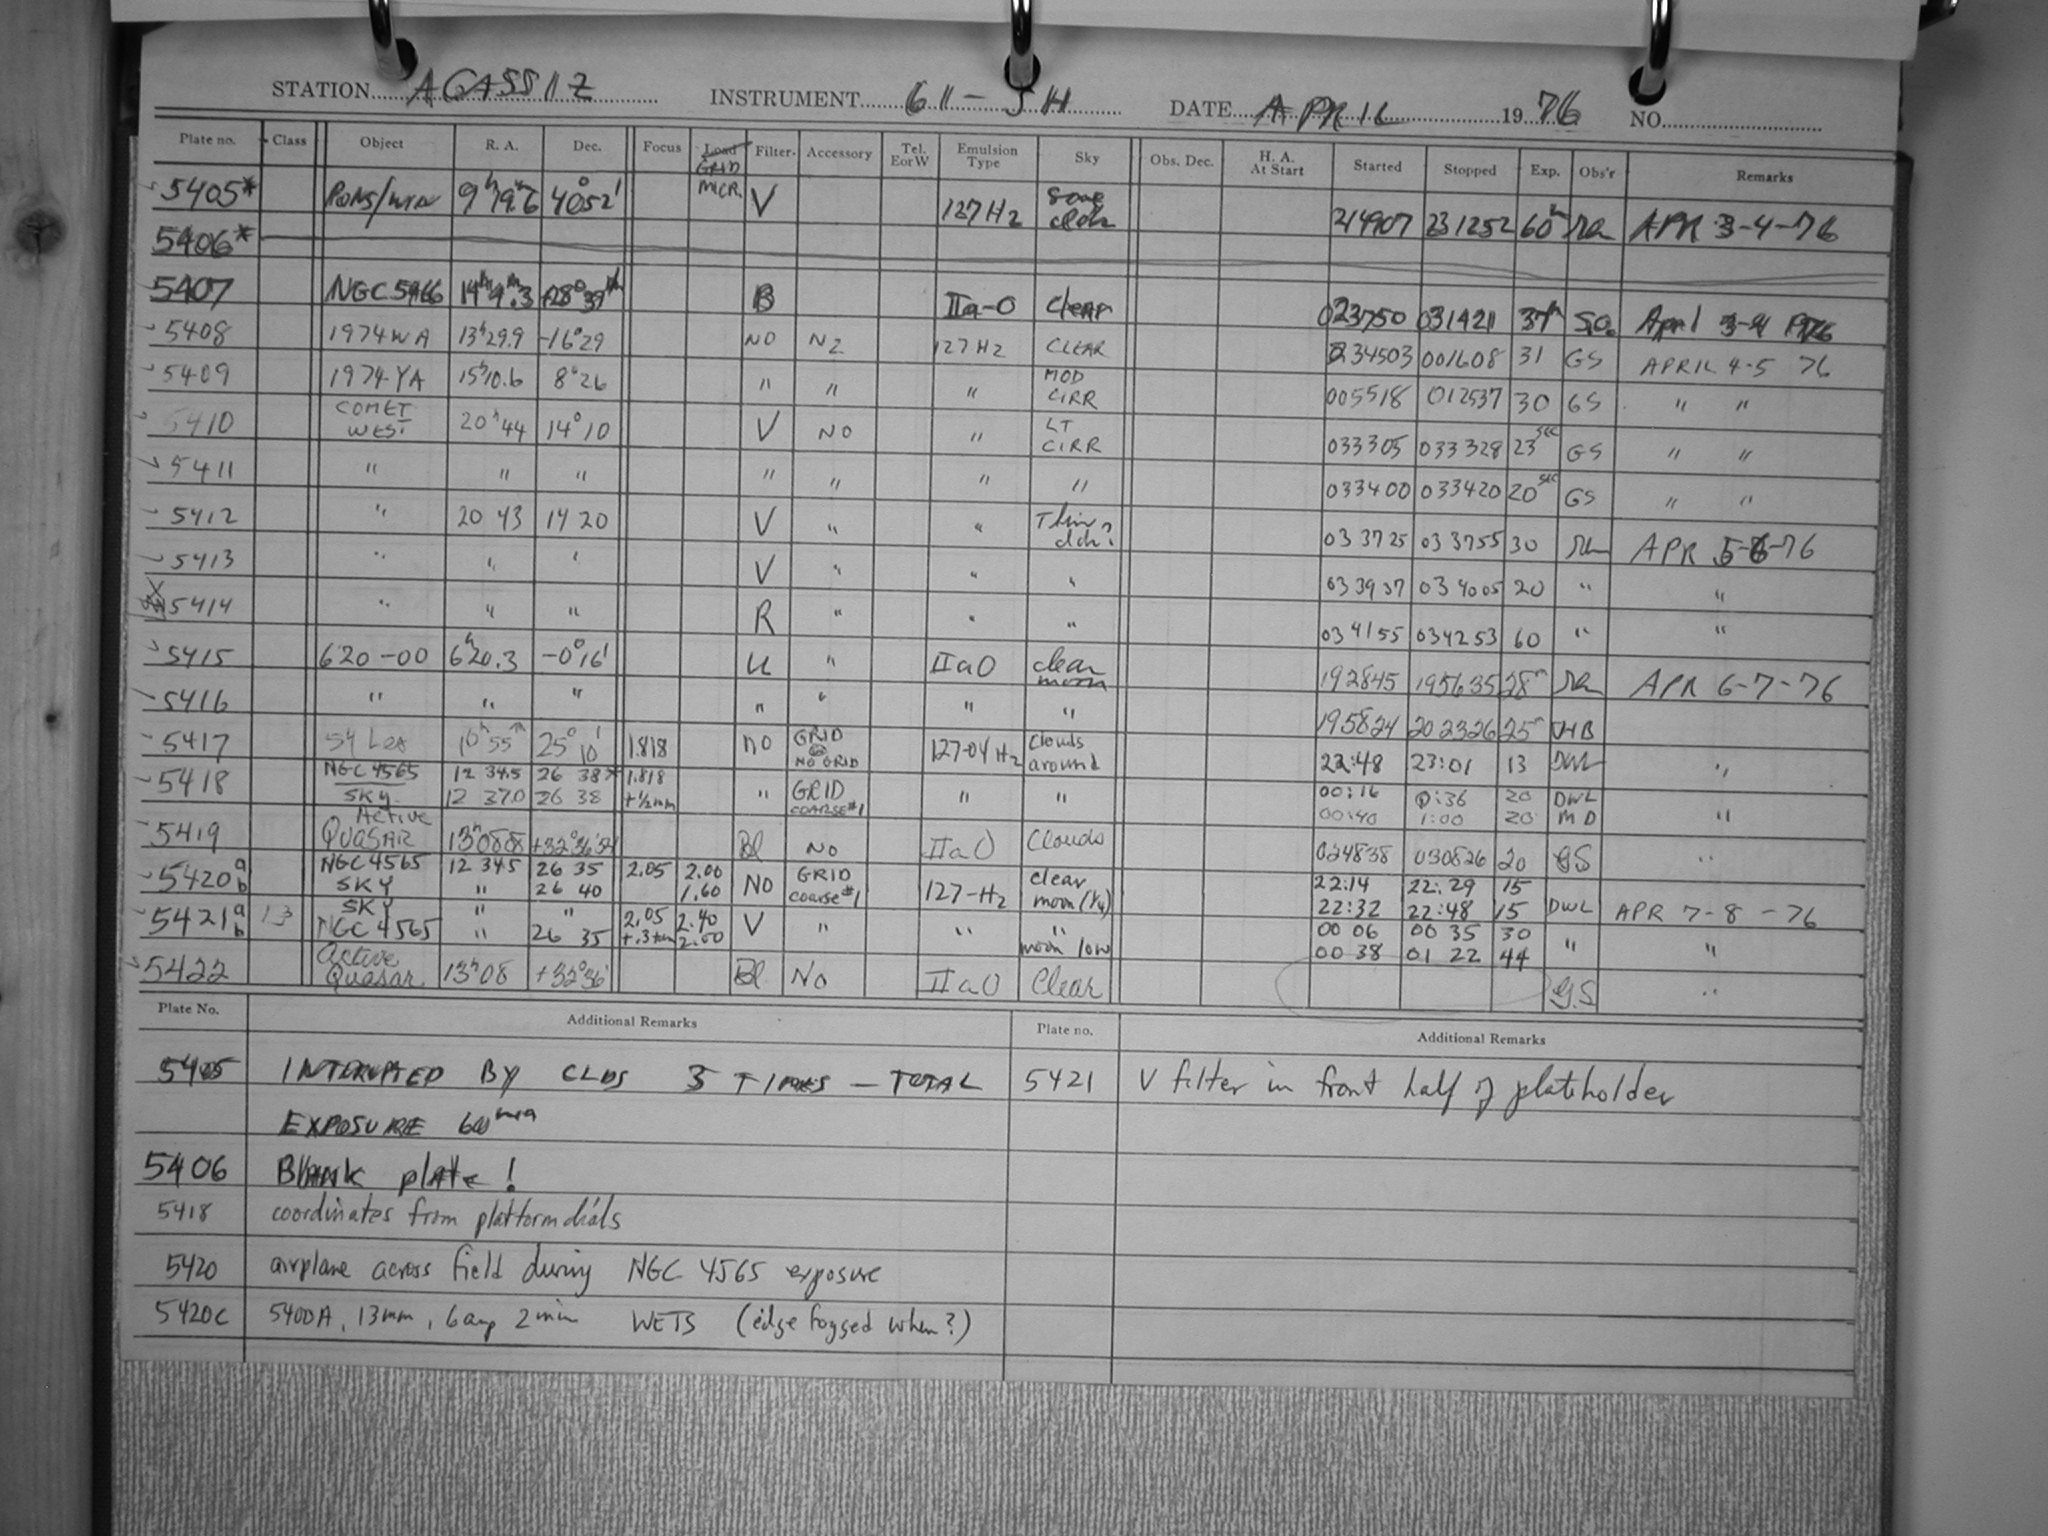 STATION AGASSIZ INSTRUMENT 61-JH DATE APRIL 1976 NO.
Plate no. Class Object R. A. Dec. Focus Load GRID MICR. Filter Accessory Tel. E or W Emulsion Type Sky Obs. Dec. H. A. At Start Started Stopped Exp. Obs'r Remarks
5405* PONS/WIN 40 52' V 127 H2 some clds 214907 231252 60m APR 3-4-76
5406*
5407 NGC 5466 +28° 39' B IIa-O Clear 023750 031421 37m S.O. April 3-4 1976
5408 1974 WA 13h29.9 -16°29 NO N2 127 H2 CLEAR 234503 001608 31 GS APRIL 4-5 76
5409 1974 YA 15h10.6 8°26 " " " MOD CIRR 005518 012537 30 GS " "
5410 COMET WEST 20h44 14°10 V NO " LT CIRR 033305 033328 23sec GS " "
5411 " " " " " " " 033400 033420 20sec GS " "
5412 " 20 43 14 20 V " " Thin clds? 033725 033755 30 APR 5-6-76
5413 " " " V " " " 033937 034005 20 " "
5414 " " " R " " " 034155 034253 60 " "
5415 620-00 6h20.3 -0°16' U " IIaO clear moon 192845 195635 28m APR 6-7-76
5416 " " " " " " " 195824 202326 25m
5417 54 Leo 10h55m 25° 10' 1.818 no GRID NO GRID 127-04 H2 Clouds around 22:48 23:01 13 DWL "
5418 NGC 4565 12 34.5 26 38 1.818 " GRID " " 00:16 0:36 20 DWL "
SKY 12 37.0 26 38 +½mm COARSE #1 00:40 1:00 20 MD
5419 Active QUASAR 13h08 +32°36' Bl No IIaO Clouds 024838 030826 20 GS "
5420a NGC 4565 12 34.5 26 35 2.05 2.00 NO GRID 127-H2 clear 22:14 22:29 15
b SKY " 26 40 1.60 coarse #1 moon (¼) 22:32 22:48 15 DWL APR 7-8-76
5421a 13 SKY " " 2.05 2.40 V " " " 00 06 00 35 30 " "
b NGC 4565 " 26 35 +.3mm 2.00 moon low 00 38 01 22 44
5422 Active Quasar 13h08 +32°36' Bl No IIaO Clear G.S "
Plate No. Additional Remarks Plate no. Additional Remarks
5405 INTERUPTED BY CLDS 3 TIMES — TOTAL 5421 V filter in front half of plateholder
EXPOSURE 60min
5406 Blank plate!
5418 coordinates from platform dials
5420 airplane across field during NGC 4565 exposure
5420C 5400A, 13mm, 6amp 2min WETS (edge fogged when?)